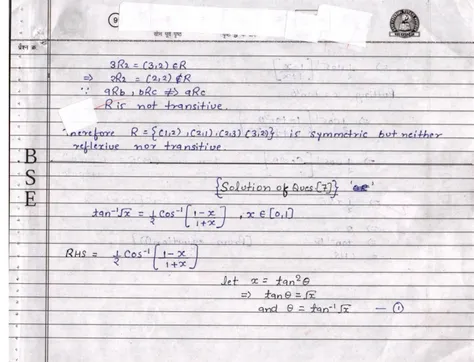 9
प्रश्न क्र.
3R2 = (3,2) ∈ R
⇒ 2R2 = (2,2) ∉ R
∵ aRb , bRc ⇏ aRc
R is not transitive.
Therefore R = {(1,2),(2,1),(2,3)(3,2)} is symmetric but neither
reflexive nor transitive.
B
S
E
{Solution of Ques [7]}
tan⁻¹√x = 1/2 Cos⁻¹ [1-x / 1+x] , x ∈ [0,1]
RHS = 1/2 Cos⁻¹ [1-x / 1+x]
let x = tan²θ
⇒ tanθ = √x
and θ = tan⁻¹√x — ①